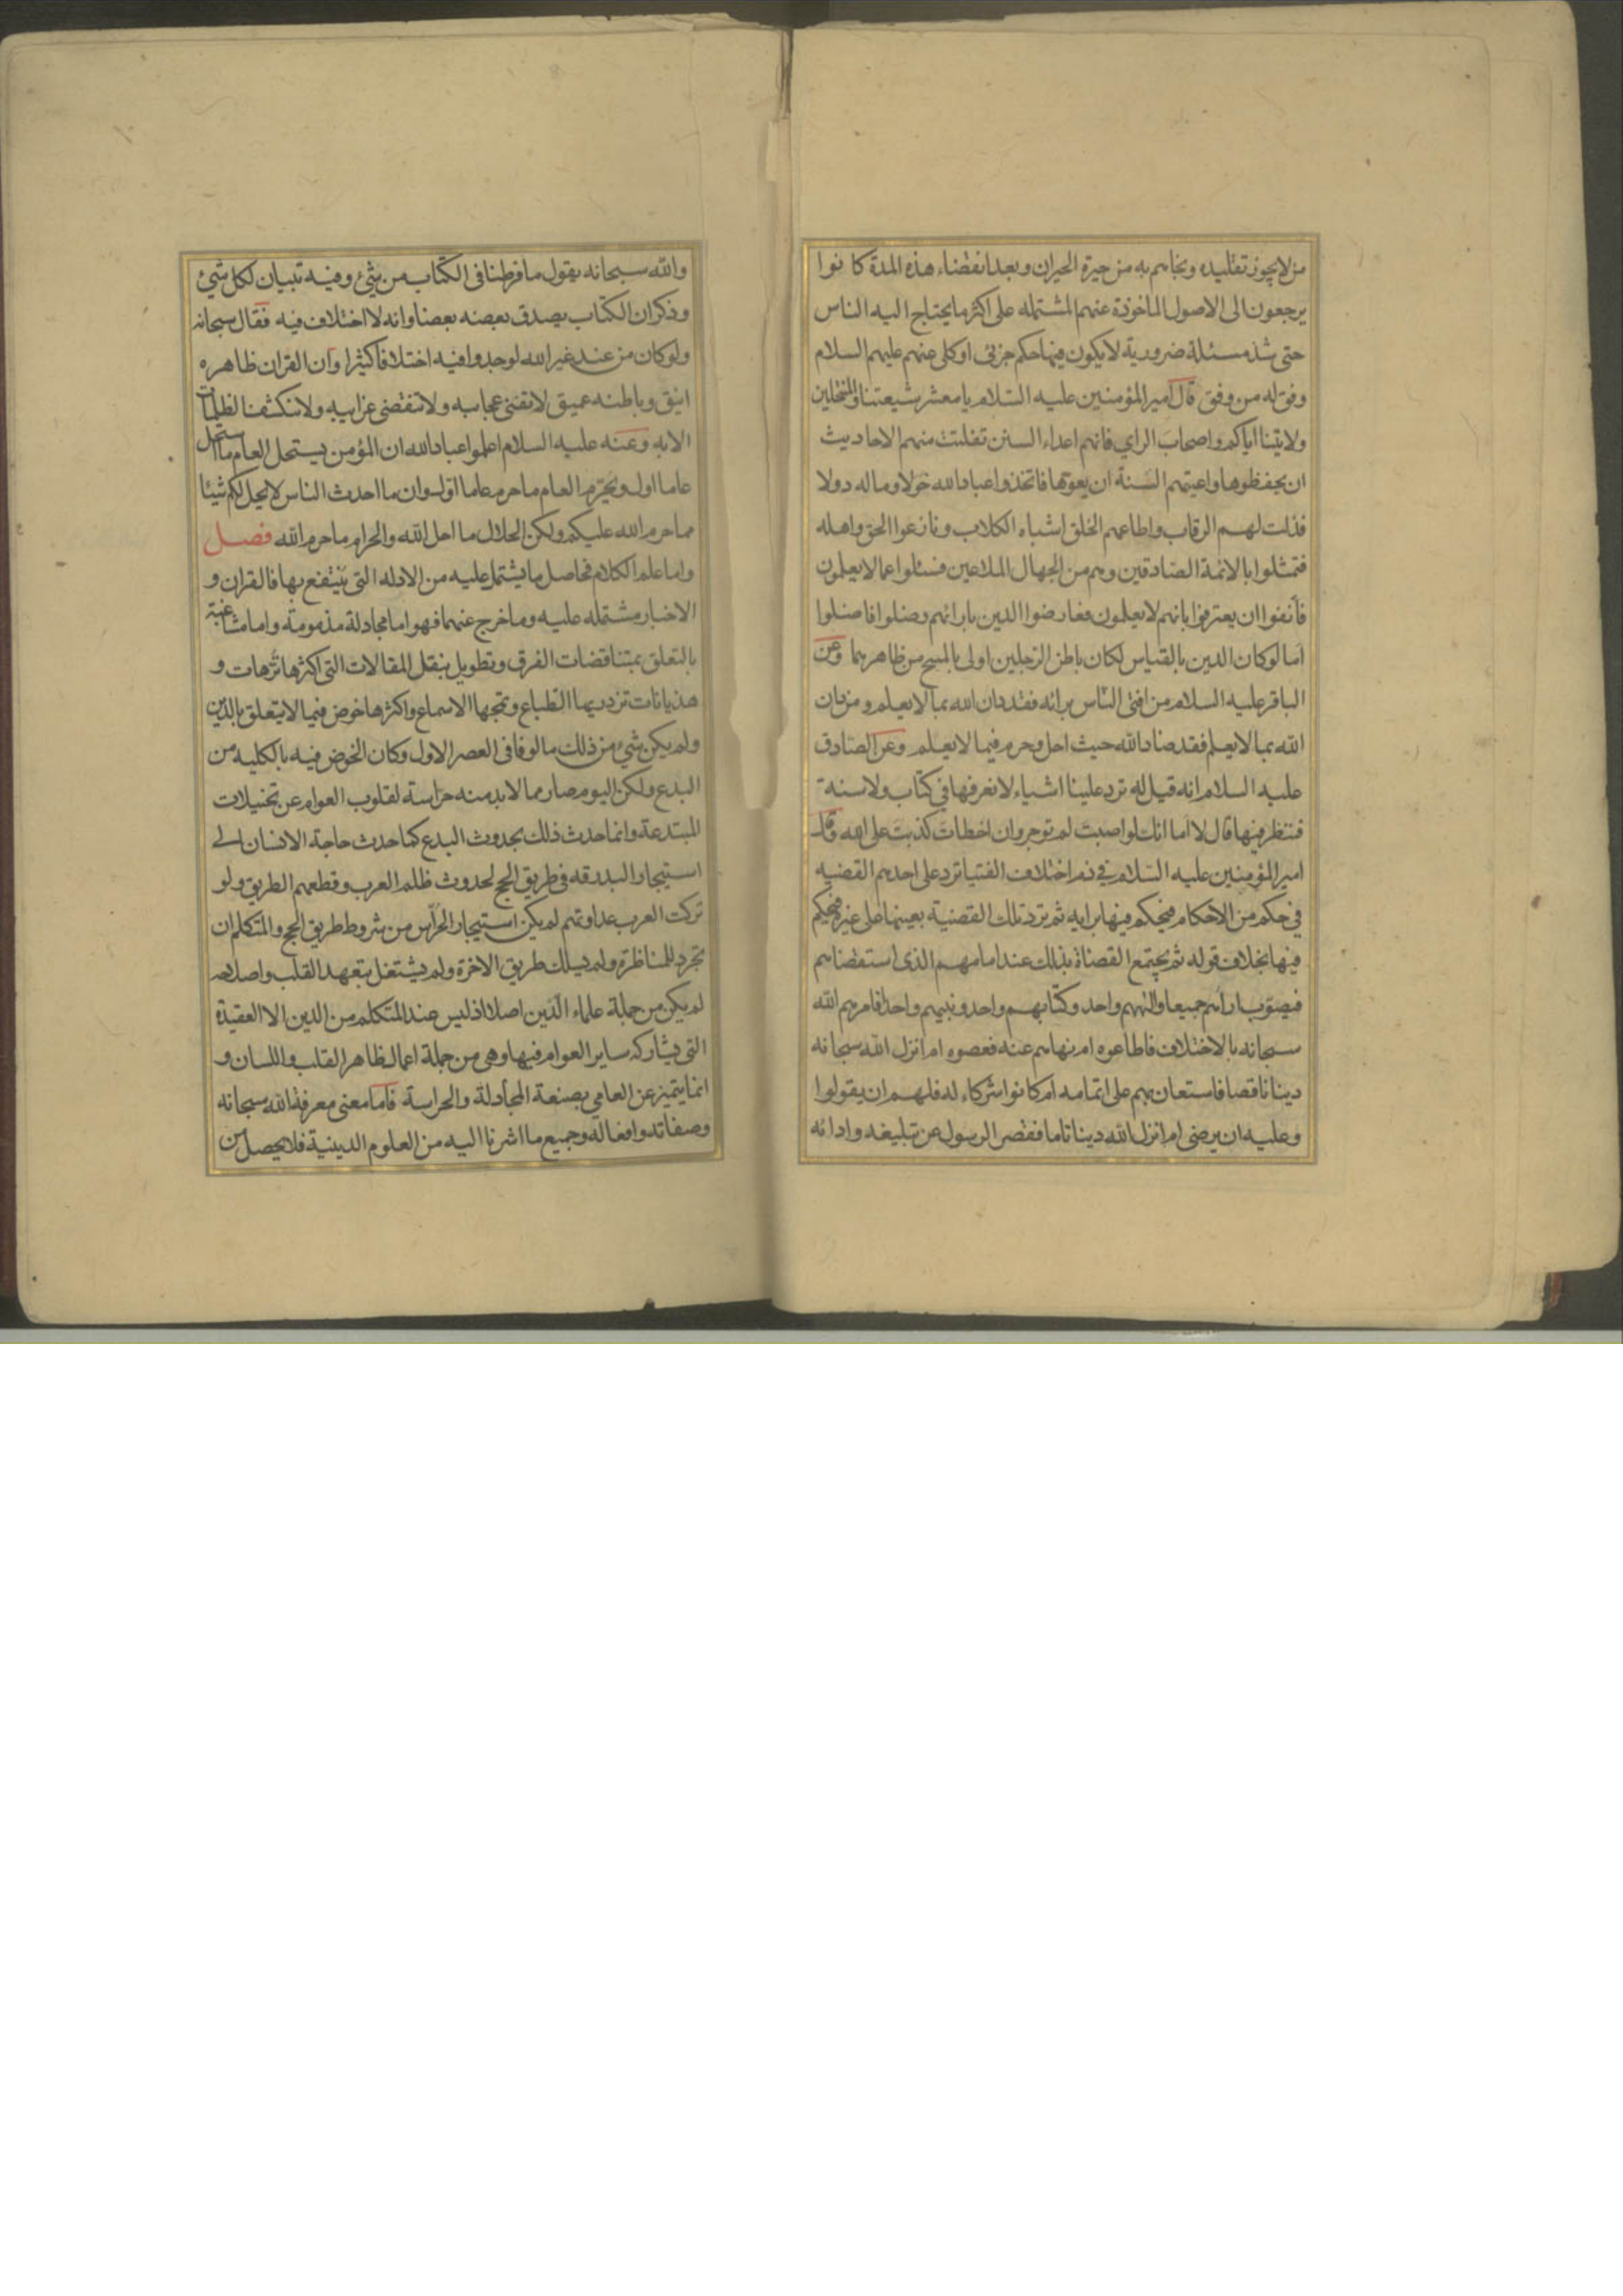 من لا يجوز تقليده ونجاهم به من حيرة الحيران وبعد انقضاء هذه المدة كانوا
يرجعون الى الاصول الماخوذة عنهم المشتمله على اكثر ما يحتاج اليه الناس
حتى شذ مسئلة ضرورية لا يكون فيها حكم جزئى او كلى عنهم عليهم السلام
وفق له من وفق قال امير المؤمنين عليه السلام يا معشر شيعتنا والمنتحلين
ولايتنا اياكم واصحاب الراي فانهم اعداء السنن تفلتت منهم الاحاديث
ان يحفظوها واعيتهم السنة ان يعوها فاتخذوا عباد الله خولا وماله دولا
فذلت لهم الرقاب واطاعهم الخلق اشباه الكلاب ونازعوا الحق واهله
فتمثلوا بالائمة الصادقين وهم من الجهال الملاعين فسئلوا عما لا يعلمون
فانفوا ان يعترفوا بانهم لا يعلمون فعارضوا الدين بارائهم وضلوا فاضلوا
اما لو كان الدين بالقياس لكان باطن الرجلين اولى بالمسح من ظاهرهما وعن
الباقر عليه السلام من افتى الناس برائه فقد دان الله بما لا يعلم ومن دان
الله بما لا يعلم فقد ضاد الله حيث احل وحرم فيما لا يعلم وعن الصادق
عليه السلام انه قيل له ترد علينا اشياء لا نعرفها في كتاب ولا سنة
فننظر فيها قال لا اما انك لو اصبت لم توجر وان اخطات كذبت على الله وقال
امير المؤمنين عليه السلام في ذم اختلاف الفتيا ترد على احدهم القضيه
في حكم من الاحكام فيحكم فيها برايه ثم ترد تلك القضية بعينها على غيره فيحكم
فيها بخلاف قوله ثم يجتمع القضاة بذلك عند امامهم الذى استقضاهم
فيصوب اراءهم جميعا والههم واحد وكتابهم واحد ونبيهم واحد افامرهم الله
سبحانه بالاختلاف فاطاعوه ام نهاهم عنه فعصوه ام انزل الله سبحانه
دينا ناقصا فاستعان بهم على اتمامه ام كانوا شركاء له فلهم ان يقولوا
وعليه ان يرضى ام انزل الله دينا تاما فقصر الرسول عن تبليغه وادائه
والله سبحانه يقول ما فرطنا فى الكتاب من شئ وفيه تبيان لكل شئ
وذكر ان الكتاب يصدق بعضه بعضا وانه لا اختلاف فيه فقال سبحانه
ولو كان من عند غير الله لوجدوا فيه اختلافا كثيرا وان القران ظاهره
انيق وباطنه عميق لا تفنى عجايبه ولا تنقضى غرايبه ولا تنكشف الظلمات
الا به وعنه عليه السلام اعلموا عباد الله ان المؤمن يستحل العام ما استحل
عاما اول ويحرم العام ما حرم عاما اول وان ما احدث الناس لا يحل لكم شيئا
مما حرم الله عليكم ولكن الحلال ما احل الله والحرام ما حرم الله فصل
واما علم الكلام فحاصل ما يشتمل عليه من الادله التى ينتفع بها فالقران و
الاخبار مشتمله عليه وما خرج عنهما فهو اما مجادلة مذمومة واما مشاغبة
بالتعلق بمتناقضات الفرق وتطويل بنقل المقالات التى اكثرها ترهات و
هذيانات تزدريها الطباع وتمجها الاسماع واكثرها خوض فيما لا يتعلق بالدين
ولم يكن شئ من ذلك مالوفا فى العصر الاول وكان الخوض فيه بالكليه من
البدع ولكن اليوم صار مما لا بد منه حراسة لقلوب العوام عن تخييلات
المبتدعة وانما حدث ذلك بحدوث البدع كما حدث حاجة الانسان الى
استيجار البدرقه فى طريق الحج لحدوث ظلم العرب وقطعهم الطريق ولو
تركت العرب عداوتهم لم يكن استيجار الحراس من شروط طريق الحج والمتكلم ان
تجرد للمناظرة ولم يسلك طريق الاخرة ولم يشتغل بتعهد القلب واصلاحه
لم يكن من جملة علماء الدين اصلا اذ ليس عند المتكلم من الدين الا العقيدة
التى يشاركه ساير العوام فيها وهى من جملة اعمال ظاهر القلب واللسان و
انما يتميز عن العامي بصنعة المجادلة والحراسة فاما معنى معرفة الله سبحانه
وصفاته وافعاله وجميع ما اشرنا اليه من العلوم الدينية فلا يحصل من